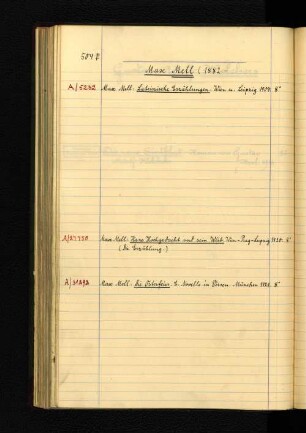 504 v.
Max Mell (1882
A/5232 Max Mell: Lateinische Erzählungen. Wien u. Leipzig 1904. 8°
Max Mell: Hans Hochgedacht und sein Weib. Wien-Prag-Leipzig 1920. 8°
(Die Erzählung.)
Max Mell: Die Osterfeier. E. Novelle in Versen. München 1921. 8°